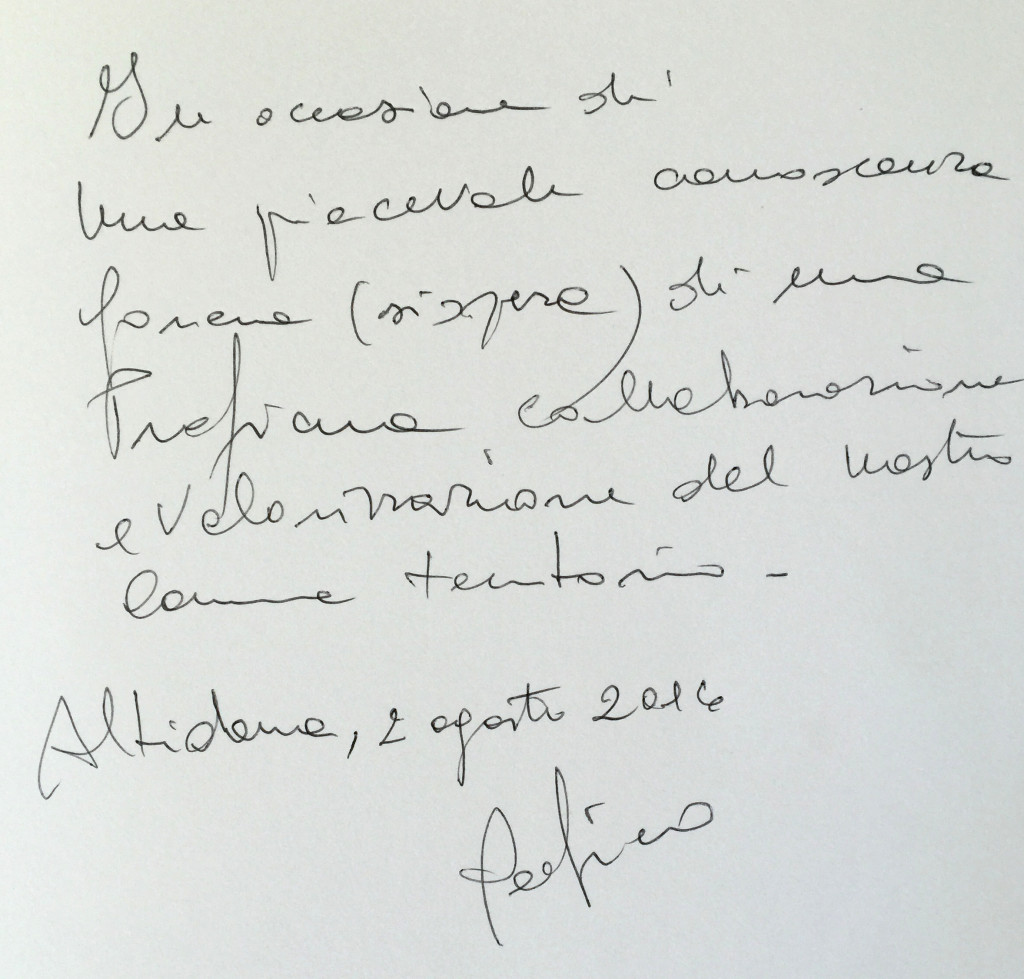 In occasione di
una piacevole conoscenza
foriera (si spera) di una
Proficua collaborazione
e valorizzazione del nostro
comune territorio -
Altidona, 2 agosto 2016